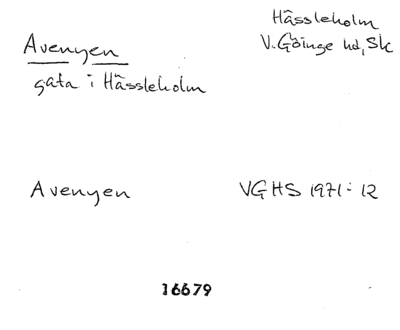 Hässleholm
V. Göinge hd, Sk
Avenyen
gata i Hässleholm
Avenyen VGHS 1971:12
16679